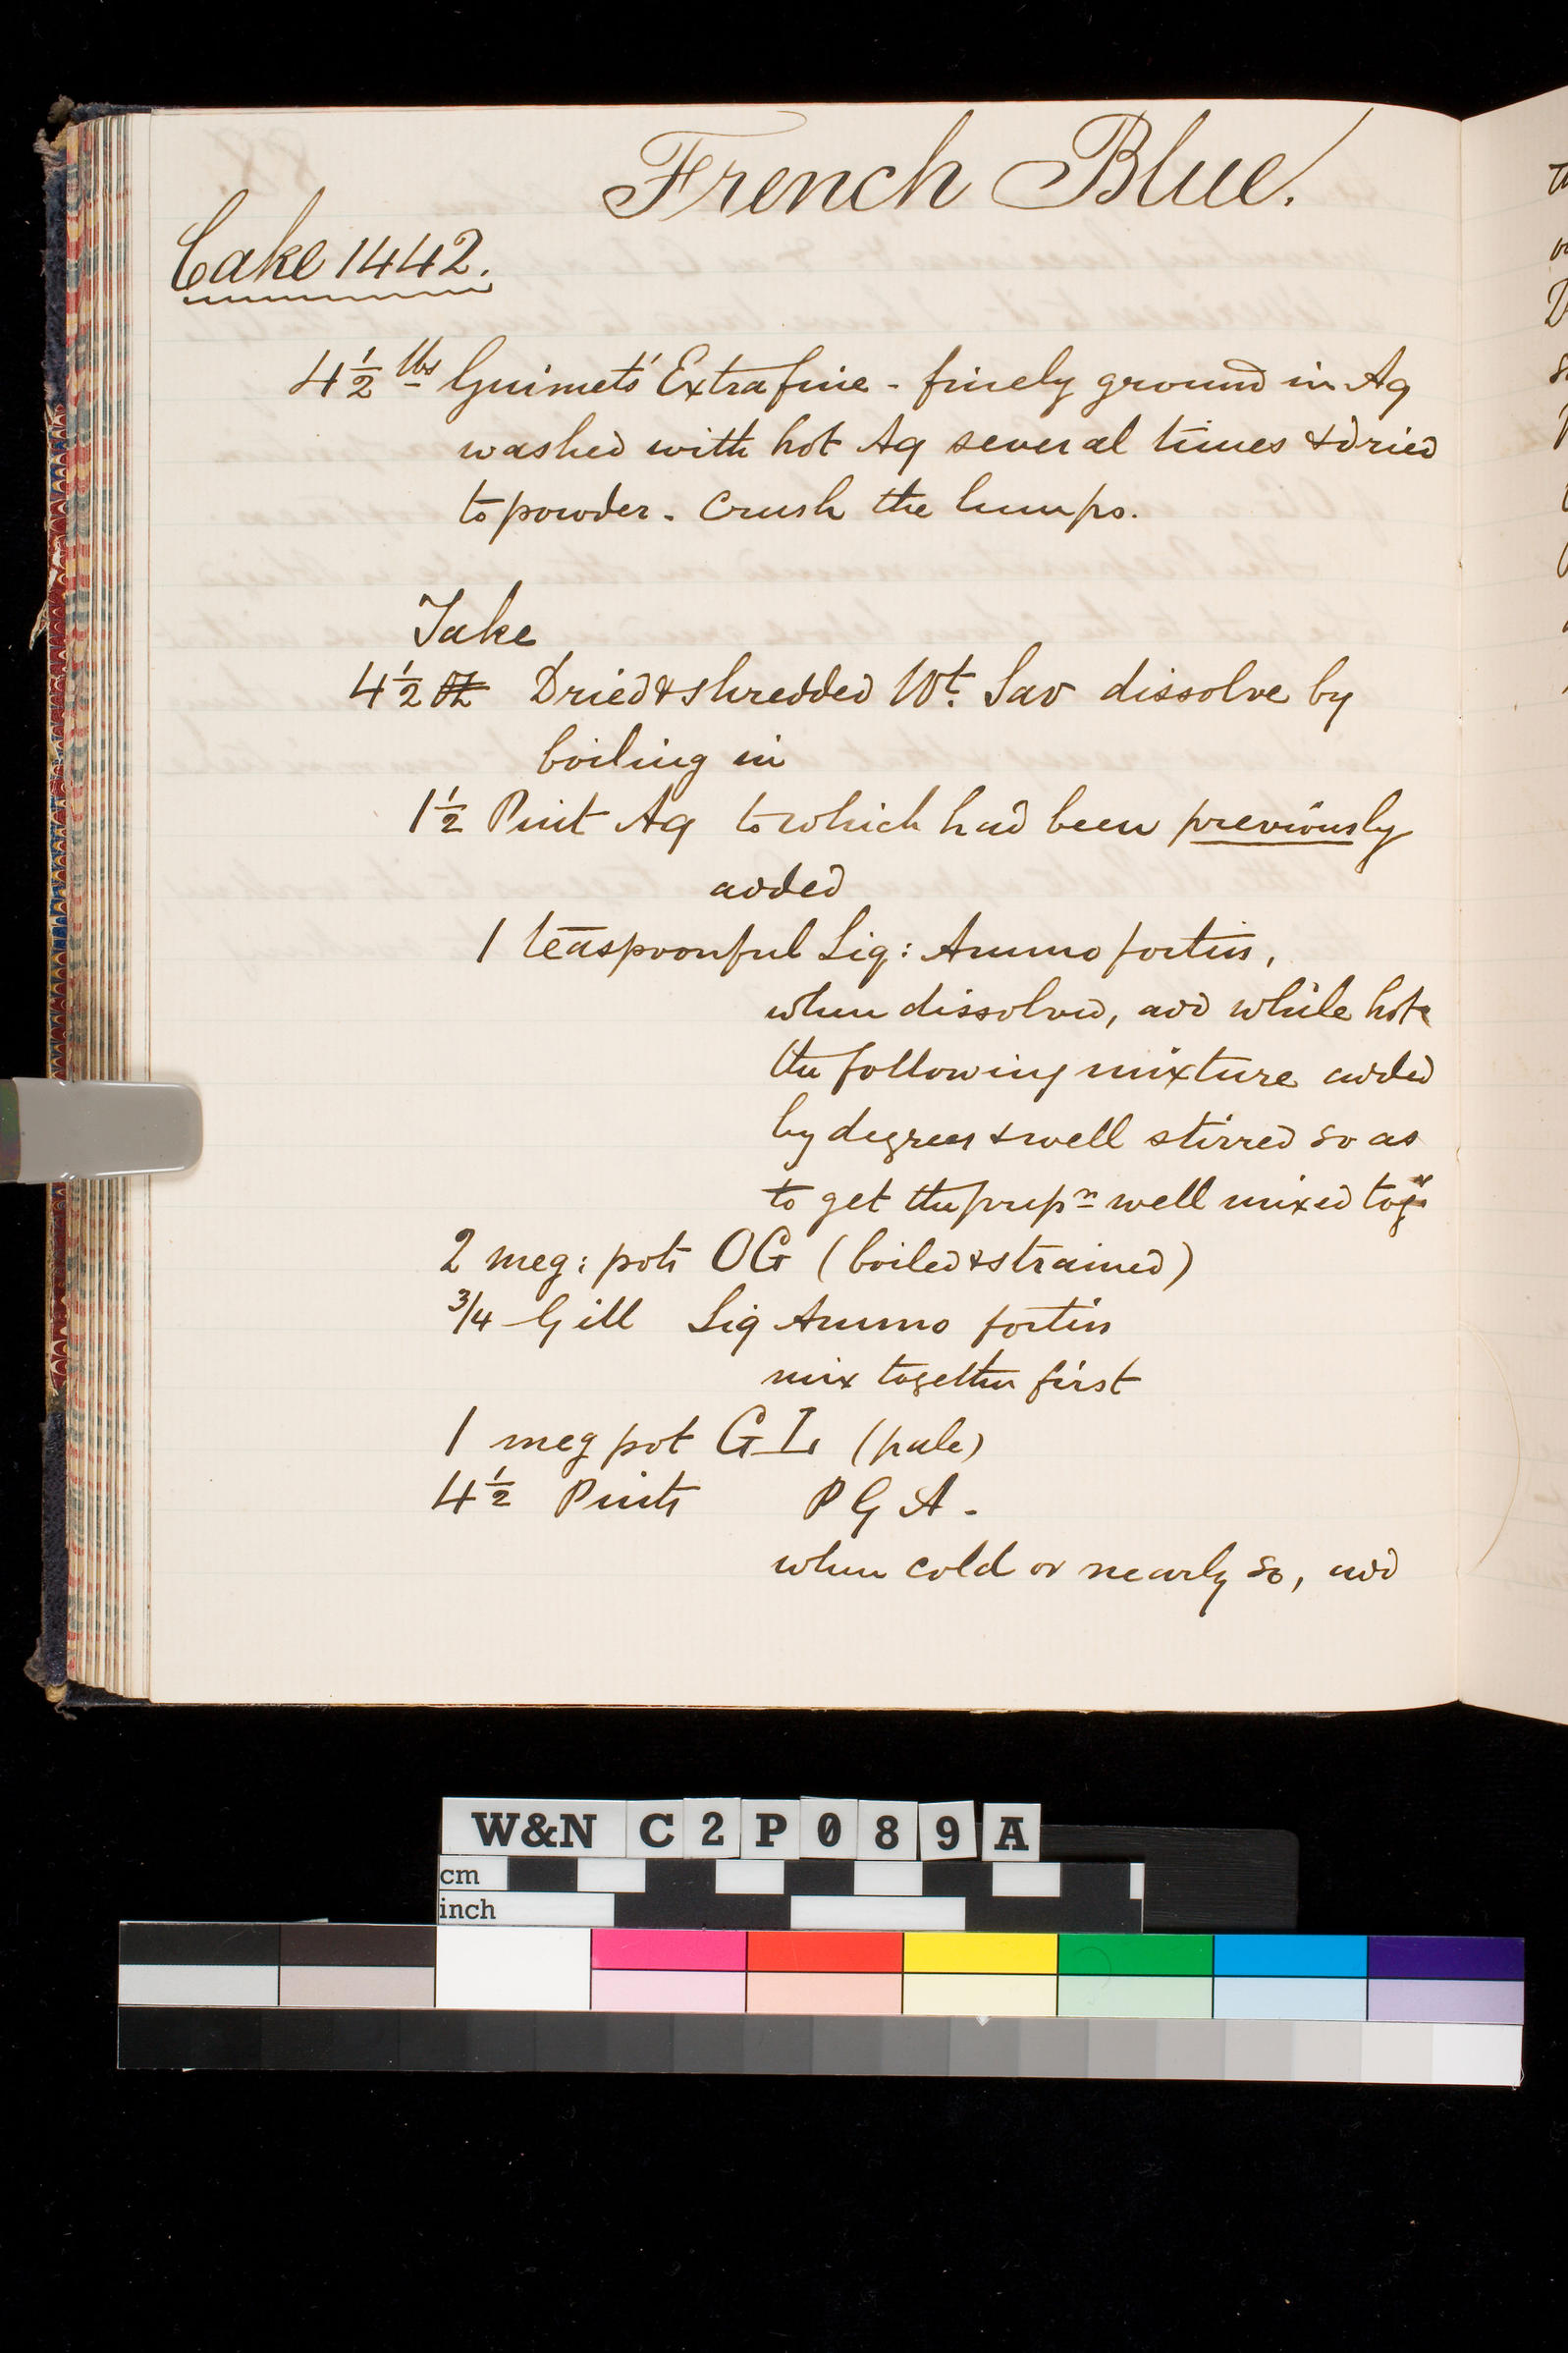 French Blue.
Cake 1442.
4½ lbs Guimets' Extra fine - finely ground in Aq
washed with hot Aq several times & dried
to powder. Crush the lumps.
Take
4½ oz Dried & shredded Wt. Sav dissolve by
boiling in
1½ Pint Aq to which had been previously
added
1 teaspoonful Liq: Ammo fortis,
when dissolved, add while hot
the following mixture added
by degrees & well stirred so as
to get the prepn well mixed togr
2 meg: pots OG (boiled & strained)
3/4 Gill Liq Ammo fortis
mix together first
1 meg pot GL (pale)
4½ Pints PGA.
when cold or nearly so, add
W&N C2P089A
cm
inch